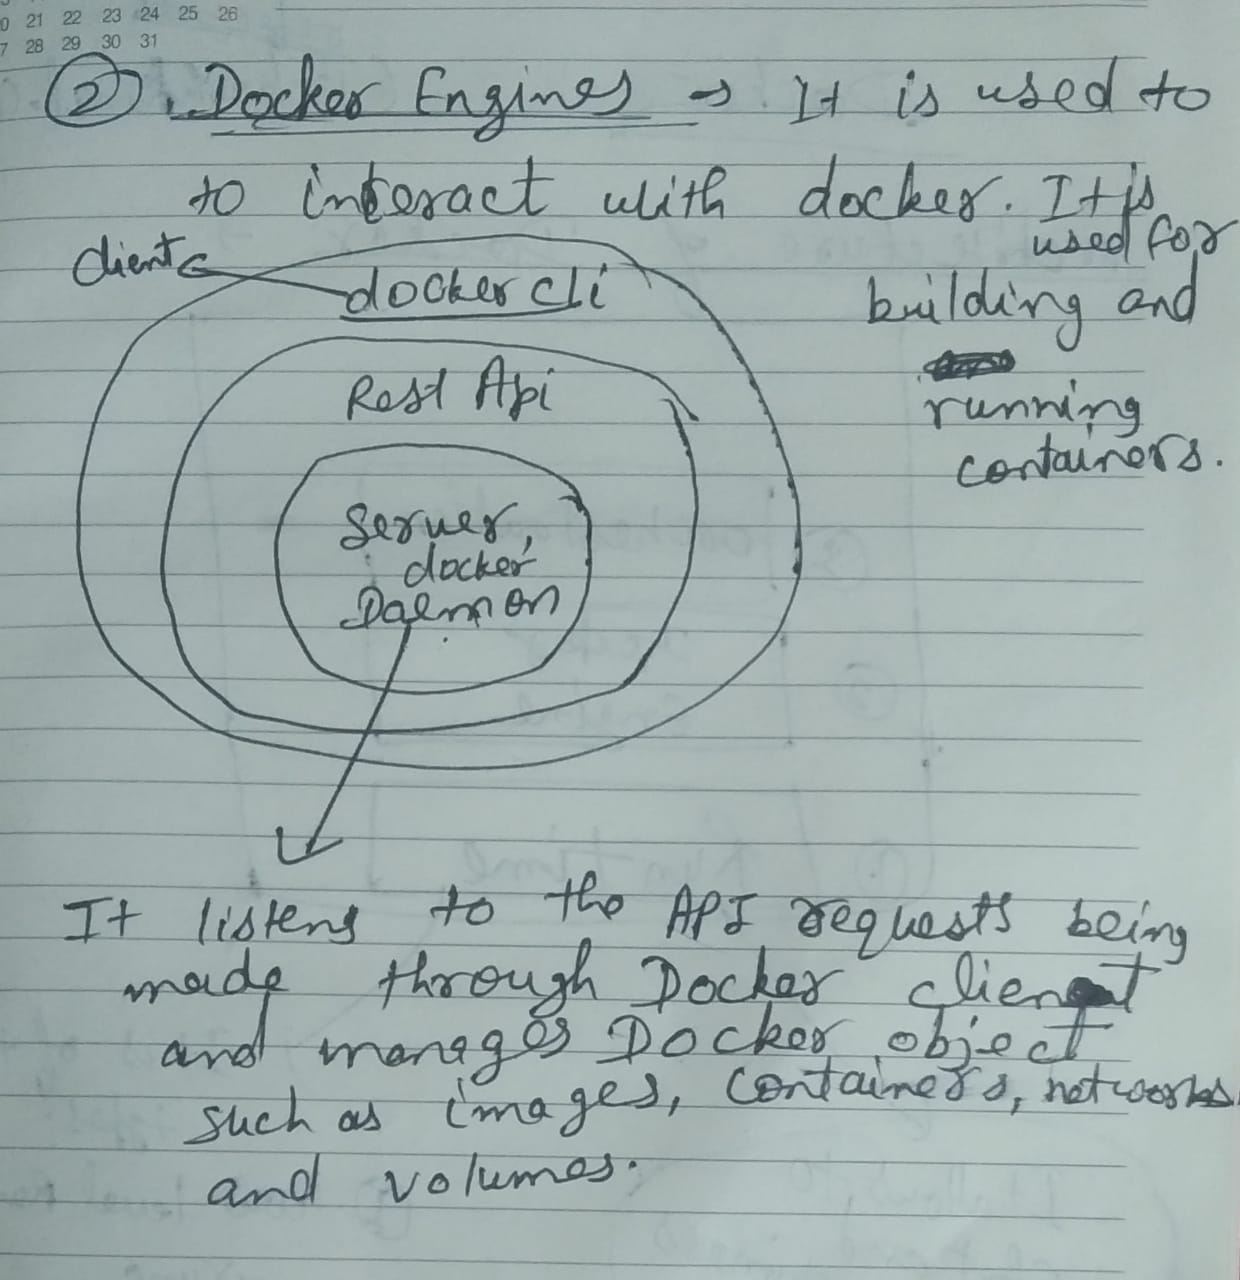 0 21 22 23 24 25 26
7 28 29 30 31
② Docker Engines → It is used to
to interact with docker. It is
used for
building and
running
containers.
Client
docker cli
Rest Api
Server,
docker
Daemon
It listens to the API requests being
made through Docker client
and manages Docker object
such as images, containers, networks
and volumes.